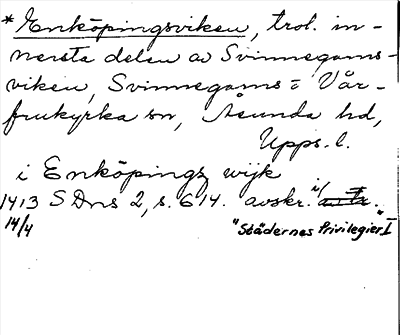 * Enköpingsviken, trol. in-
nersta delen av Svinnegarns-
viken, Svinnegarns = Vår-
frukyrka sn, Åsunda hd,
Upps. l.
i Enköpings wijk
1413 SDns 2, s. 614. avskr. i
14/4 "Städernes Privilegier I"